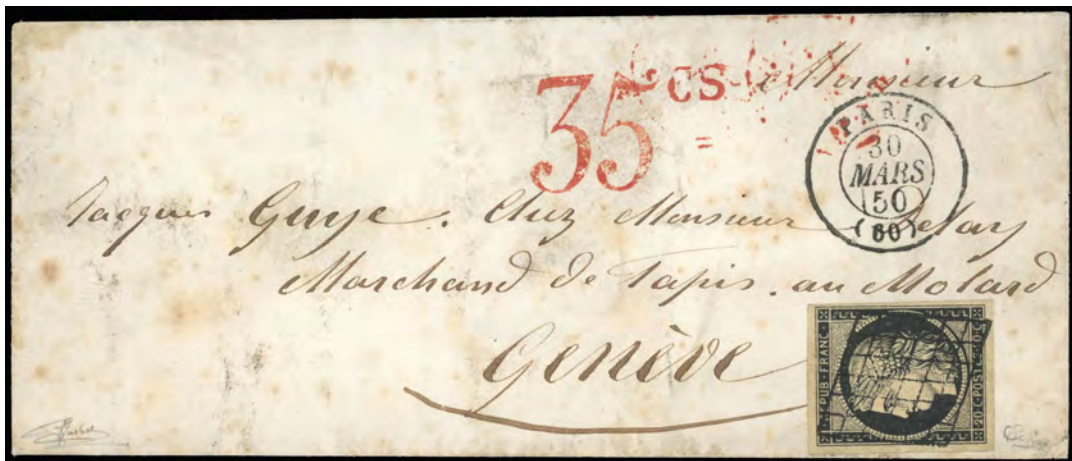 35 CS à Monsieur
PARIS
30
MARS
50
(60)
Jacques Guye. Chez Monsieur
Marchand de Tapis. au Molard
Genève
REPUB FRANC
20 C POSTE 20 C